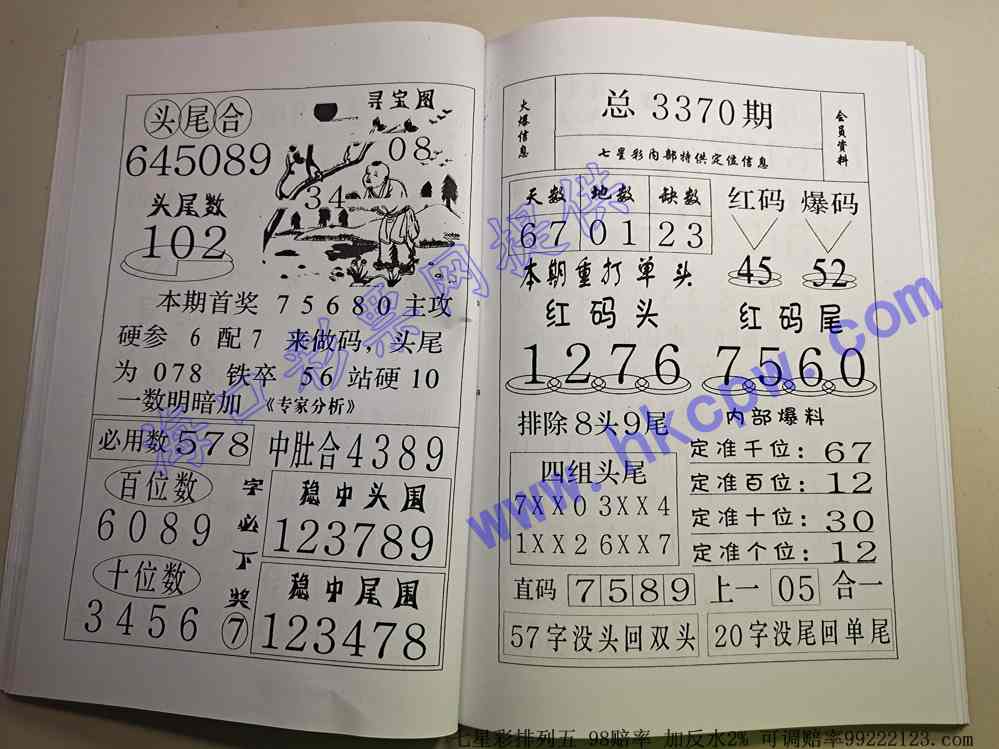 头尾合
645089
头尾数
102
寻宝图
08
34
本期首奖 75680主攻
硬参 6 配7 来做码，头尾
为 078 铁卒 56 站硬10
一数明暗加 《专家分析》
必用数578
中肚合4389
百位数
6089
十位数
3456
字必下奖⑦
稳中头围
123789
稳中尾围
123478
火爆信息
总 3370期
七星彩内部特供定位信息
会员资料
天数 地数 缺数
67 01 23
红码 爆码
45 52
本期重打单头
红码头
1276
红码尾
7560
排除8头9尾
四组头尾
7XX0 3XX4
1XX2 6XX7
内部爆料
定准千位：67
定准百位：12
定准十位：30
定准个位：12
直码 7589 上一 05 合一
57字没头回双头
20字没尾回单尾
海口彩票网提供
www.hkcpw.com
七星彩排列五 98赔率 加反水2% 可调赔率99222123.com